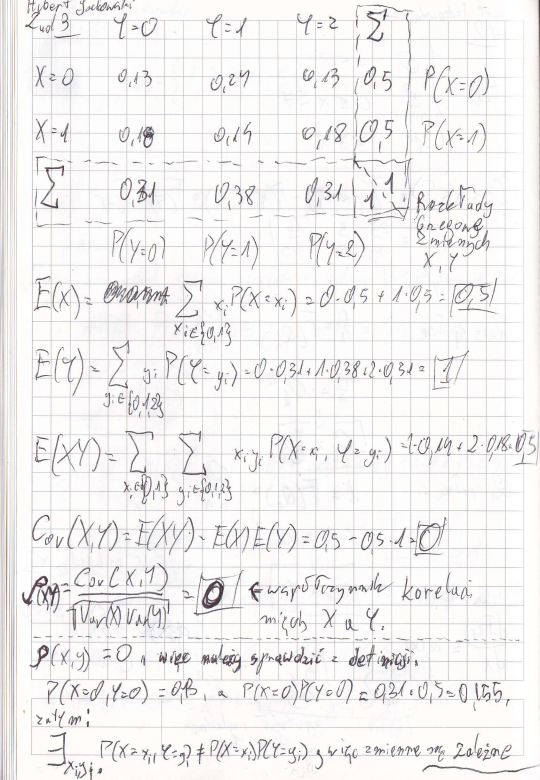 Hubert
Zad 3 Y=0 Y=1 Y=2 Σ
X=0 0,13 0,24 0,13 0,5 P(X=0)
X=1 0,18 0,14 0,18 0,5 P(X=1)
Σ 0,31 0,38 0,31 1 1
P(Y=0) P(Y=1) P(Y=2)
Rozkłady
brzegowe
zmiennych
X, Y
E(X) = Σ xi P(X=xi) = 0·0,5 + 1·0,5 = 0,5
xi∈{0,1}
E(Y) = Σ yi P(Y=yi) = 0·0,31+1·0,38+2·0,31 = 1
yi∈{0,1,2}
E(XY) = Σ Σ xi yi P(X=xi, Y=yi) = 1·0,14 + 2·0,18 = 0,5
xi∈{0,1} yi∈{0,1,2}
Cov(X,Y) = E(XY) - E(X)E(Y) = 0,5 - 0,5·1 = 0
ρ(X,Y) = Cov(X,Y) / √Var(X)Var(Y) = 0 ← współczynnik korelacji
X a Y.
ρ(X,Y) = 0, więc należy sprawdzić z definicji.
P(X=0,Y=0) = 0,13, a P(X=0)P(Y=0) = 0,31·0,5=0,155,
zatem:
∃ xi,yi. P(X=xi, Y=yi) ≠ P(X=xi)P(Y=yi), więc zmienne są zależne